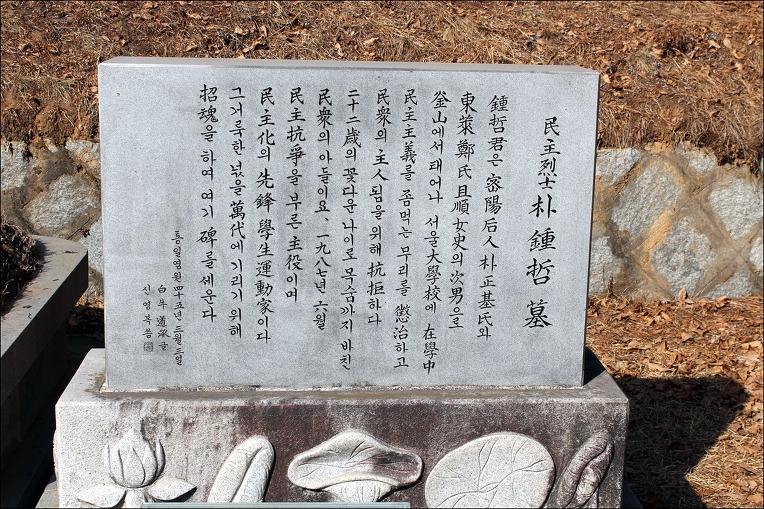 民主烈士 朴鍾哲 墓
鍾哲君은 密陽后人 朴正基氏와
東萊鄭氏且順女史의 次男으로
釜山에서 태어나 서울大學校에 在學中
民主主義를 좀먹는 무리를 懲治하고
民衆의 主人됨을 위해 抗拒하다
二十二歲의 꽃다운 나이로 목숨까지 바친
民衆의 아들이요, 一九八七년 六월
民主抗爭을 부른 主役이며
民主化의 先鋒 學生運動家이다
그거룩한 넋을 萬代에 기리기 위해
招魂을 하여 여기 碑를 세운다
통일염원 四十五년 三월 三일
白牛 글
신영복 씀